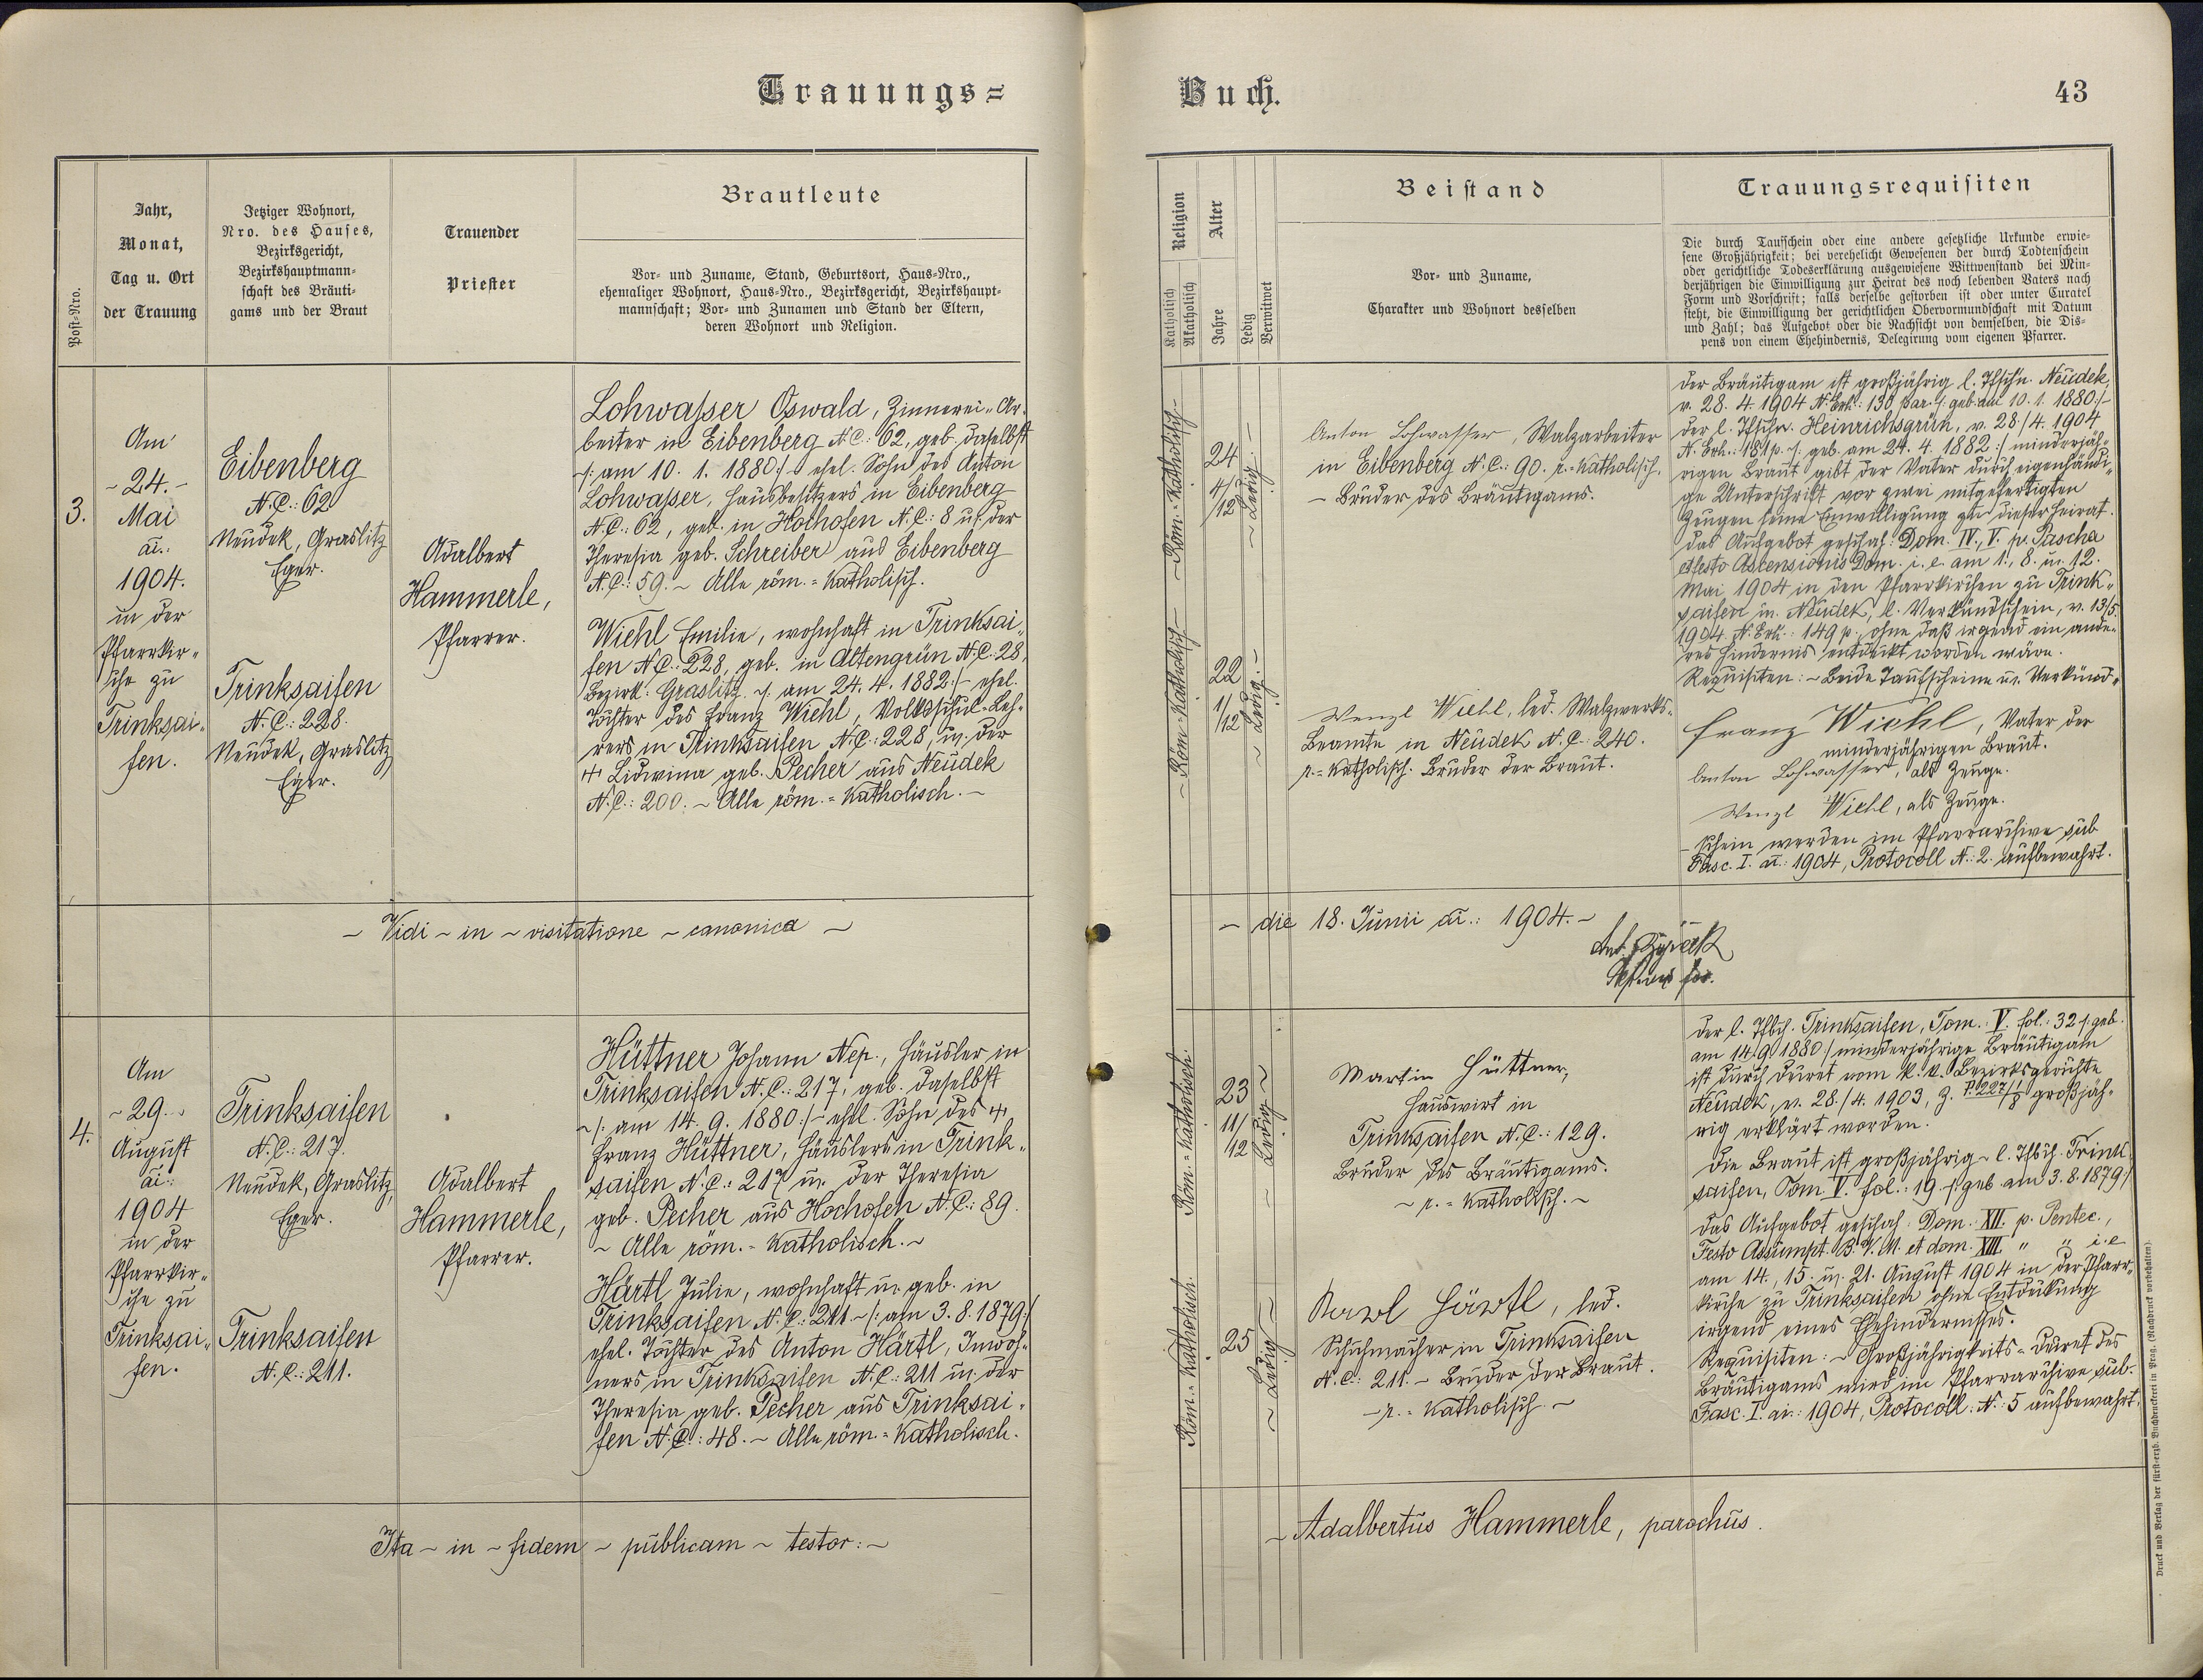 Trauungs=
Buch.
43
Post=Nro.
Jahr,
Monat,
Tag u. Ort
der Trauung
Jetziger Wohnort,
Nro. des Hauses,
Bezirksgericht,
Bezirkshauptmann=
schaft des Bräuti=
gams und der Braut
Trauender
Priester
Brautleute
Vor= und Zuname, Stand, Geburtsort, Haus=Nro.,
ehemaliger Wohnort, Haus=Nro., Bezirksgericht, Bezirkshaupt=
mannschaft; Vor= und Zunamen und Stand der Eltern,
deren Wohnort und Religion.
Religion
Katholisch
Akatholisch
Alter
Jahre
Ledig
Verwitwet
Beistand
Vor= und Zuname,
Charakter und Wohnort desselben
Trauungsrequisiten
Die durch Taufschein oder eine andere gesetzliche Urkunde erwie=
sene Großjährigkeit; bei verehelicht Gewesenen der durch Todtenschein
oder gerichtliche Todeserklärung ausgewiesene Wittwenstand bei Min=
derjährigen die Einwilligung zur Heirat des noch lebenden Vaters nach
Form und Vorschrift; falls derselbe gestorben ist oder unter Curatel
steht, die Einwilligung der gerichtlichen Obervormundschaft mit Datum
und Zahl; das Aufgebot oder die Nachsicht von demselben, die Dis=
pens von einem Ehehindernis, Delegirung vom eigenen Pfarrer.
3.
Am
~ 24. ~
Mai
ai.:
1904.
in der
Pfarrkir=
che zu
Trinksai=
fen.
Eibenberg
N.C.: 62
Neudek, Graslitz
Eger.
Trinksaifen
N.C.: 228.
Neudek, Graslitz
Eger.
Adalbert
Hammerle,
Pfarrer.
Lohwasser Oswald, Zinnerei=Ar=
beiter in Eibenberg N.C.: 62, geb. daselbst
~/: am 10. 1. 1880 :/~ ehel. Sohn des Anton
Lohwasser, Hausbesitzers in Eibenberg
N.C.: 62, geb. in Hochofen N.C.: 8 u. der
Theresia geb. Schreiber aus Eibenberg
N.C.: 59. ~ Alle röm.=katholisch.
Wiehl Emilie, wohnhaft in Trinksai=
fen N.C.: 228, geb. in Altengrün N.C.: 28,
Bezirk: Graslitz ~/: am 24. 4. 1882 :/~ ehel.
Tochter des Franz Wiehl, Volksschul=Leh=
rers in Trinksaifen N.C.: 228, u. der
+ Lidwina geb. Pecher aus Neudek
N.C.: 200. ~ Alle röm.=katholisch. ~
~ Röm.=katholisch ~
24
4/
12
~ Ledig. ~
Anton Lohwasser, Walzarbeiter
in Eibenberg N.C.: 90. r.=katholisch.
~ Bruder des Bräutigams.
~ Röm.=katholisch ~
22
1/
12
~ Ledig. ~
Wenzl Wiehl, led. Walzwerks=
Beamte in Neudek N.C. 240.
r.=katholisch. Bruder der Braut.
Der Bräutigam ist großjährig l. Tfschn. Neudek,
v. 28. 4. 1904 N. Exh.: 130 par. /: geb. am 10. 1. 1880 :/~
der l. Tfschn. Heinrichsgrün, v. 28./4. 1904
N. Exh.: 181 p. ~/: geb. am 24. 4. 1882 :/ minderjäh=
rigen Braut gibt der Vater durch eigenhändi=
ge Unterschrift vor zwei mitgefertigten
Zeugen seine Einwilligung zu dieser Heirat.
Das Aufgebot geschah: Dom. IV., V. p. Pascha
et festo Ascensionis Dom. i. e. am 1., 8. u. 12.
Mai 1904 in den Pfarrkirchen zu Trink=
saifen u. Neudek, l. Verkündschein, v. 13/5.
1904 N. Exh.: 149 p., ohne daß irgend ein ande=
res Hindernis entdeckt worden wäre.
Requisiten: ~ Beide Taufscheine u. Verkünd=
Franz Wiehl, Vater der
minderjährigen Braut.
Anton Lohwasser, als Zeuge.
Wenzl Wiehl, als Zeuge.
~ schein werden im Pfarrarchive sub
Fasc. I. ai.: 1904, Protocoll N.: 2. aufbewahrt.
~ Vidi ~ in ~ visitatione ~ canonica ~
~ die 18. Junii ai.: 1904. ~
Ant.
4.
Am
~ 29. ~
August
ai.:
1904
in der
Pfarrkir=
che zu
Trinksai=
fen.
Trinksaifen
N.C.: 217.
Neudek, Graslitz,
Eger.
Trinksaifen
N.C.: 211.
Adalbert
Hammerle,
Pfarrer.
Hüttner Johann Nep., Häusler in
Trinksaifen N.C.: 217, geb. daselbst
~/: am 14. 9. 1880 :/~ ehel. Sohn des +
Franz Hüttner, Häuslers in Trink=
saifen N.C.: 217 u. der Theresia
geb. Pecher aus Hochofen N.C.: 89.
~ Alle röm.=katholisch. ~
Härtl Julie, wohnhaft u. geb. in
Trinksaifen N.C.: 211. ~/: am 3. 8. 1879 :/
ehel. Tochter des Anton Härtl, Inwoh=
ners in Trinksaifen N.C.: 211 u. der
Theresia geb. Pecher aus Trinksai=
fen N.C.: 48. ~ Alle röm.=katholisch.
Röm.=katholisch.
23
11/
12
~ Ledig ~
Martin Hüttner,
Hauswirt in
Trinksaifen N.C.: 129.
Bruder des Bräutigams.
~ r.=katholisch. ~
Röm.=katholisch.
25
~ Ledig ~
Karl Härtl, led.
Schuhmacher in Trinksaifen
N.C.: 211. ~ Bruder der Braut.
~ r.=katholisch. ~
Der l. Tfbch. Trinksaifen, Tom. V. fol.: 32 /: geb.
am 14. 9. 1880 :/ minderjährige Bräutigam
ist durch Decret vom k. k. Bezirksgerichte
Neudek, v. 28./4. 1903, Z. P. 227/1 8 großjäh=
rig erklärt worden.
Die Braut ist großjährig ~ l. Tfbch. Trink=
saifen, Tom. V. fol.: 19. /: geb. am 3. 8. 1879 :/
Das Aufgebot geschah: Dom. XII. p. Pentec.,
Festo Assumpt. B. V. M. et dom. XIII. " " i. e.
am 14., 15. u. 21. August 1904 in der Pfarr=
kirche zu Trinksaifen ohne Entdeckung
irgend eines Ehehindernisses.
Requisiten: ~ Großjährigkeits=Decret des
Bräutigams wird im Pfarrarchive sub.
Fasc. I. ai.: 1904, Protocoll: N.: 5 aufbewahrt.
Ita ~ in ~ fidem ~ publicam ~ testor: ~
~ Adalbertus Hammerle, parochus.
Druck und Verlag der fürst=erzb. Buchdruckerei in Prag. (Nachdruck vorbehalten).